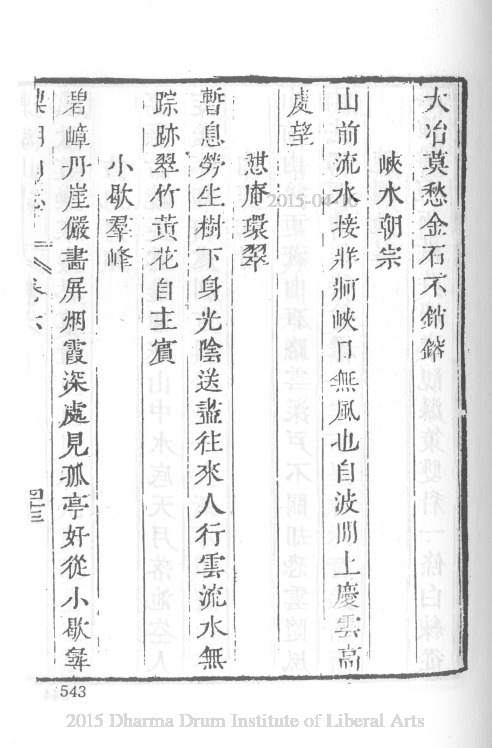 大冶莫愁金石不銷鎔
峽水朝宗
山前流水接牂牁峽口無風也自波閒上慶雲高
處望
憇庵環翠
暫息勞生樹下身光陰送盡往來人行雲流水無
踪跡翠竹黃花自主賓
小歇羣峰
碧嶂丹崖儼畵屏烟霞深處見孤亭好從小歇舜
卷六
四十三
2015-04-
543
2015 Dharma Drum Institute of Liberal Arts